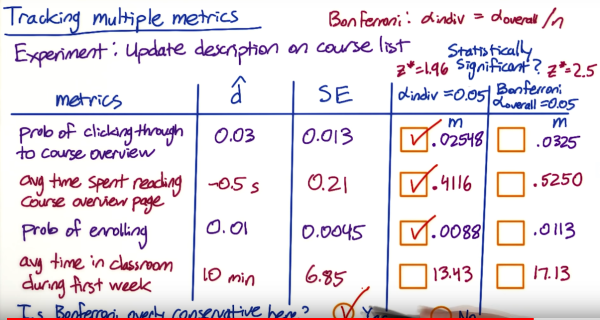 Tracking multiple metrics
Bonferroni: αindiv = αoverall/n
Experiment: Update description on course list
Statistically
Significant?
z*=1.96
z*=2.5
metrics d̂ SE αindiv=0.05 Bonferroni
αoverall=0.05
m m
prob of clicking through
to course overview
0.03 0.013 .02548 .0325
avg time spent reading
course overview page
-0.5 s 0.21 .4116 .5250
prob of enrolling 0.01 0.0045 .0088 .0113
avg time in classroom
during first week
10 min 6.85 13.43 17.13
Is Bonferroni overly conservative here?